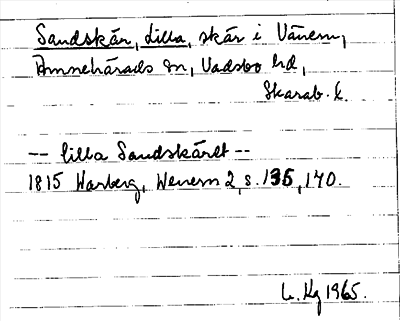 Sandskär, Lilla, skär i Vänern,
Amnehärads sn, Vadsbo hd,
Skarab. l.
-- lilla Sandskäret --
1815 Warberg, Wenern 2, s. 135, 140.
Kg 1965.